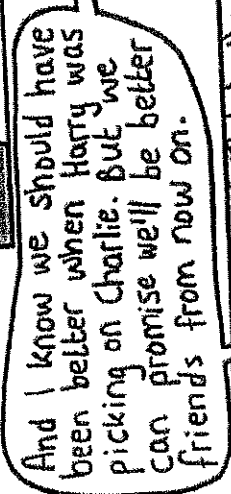 And I know we should have
been better when Harry was
picking on Charlie. But we
can promise we'll be better
friends from now on.